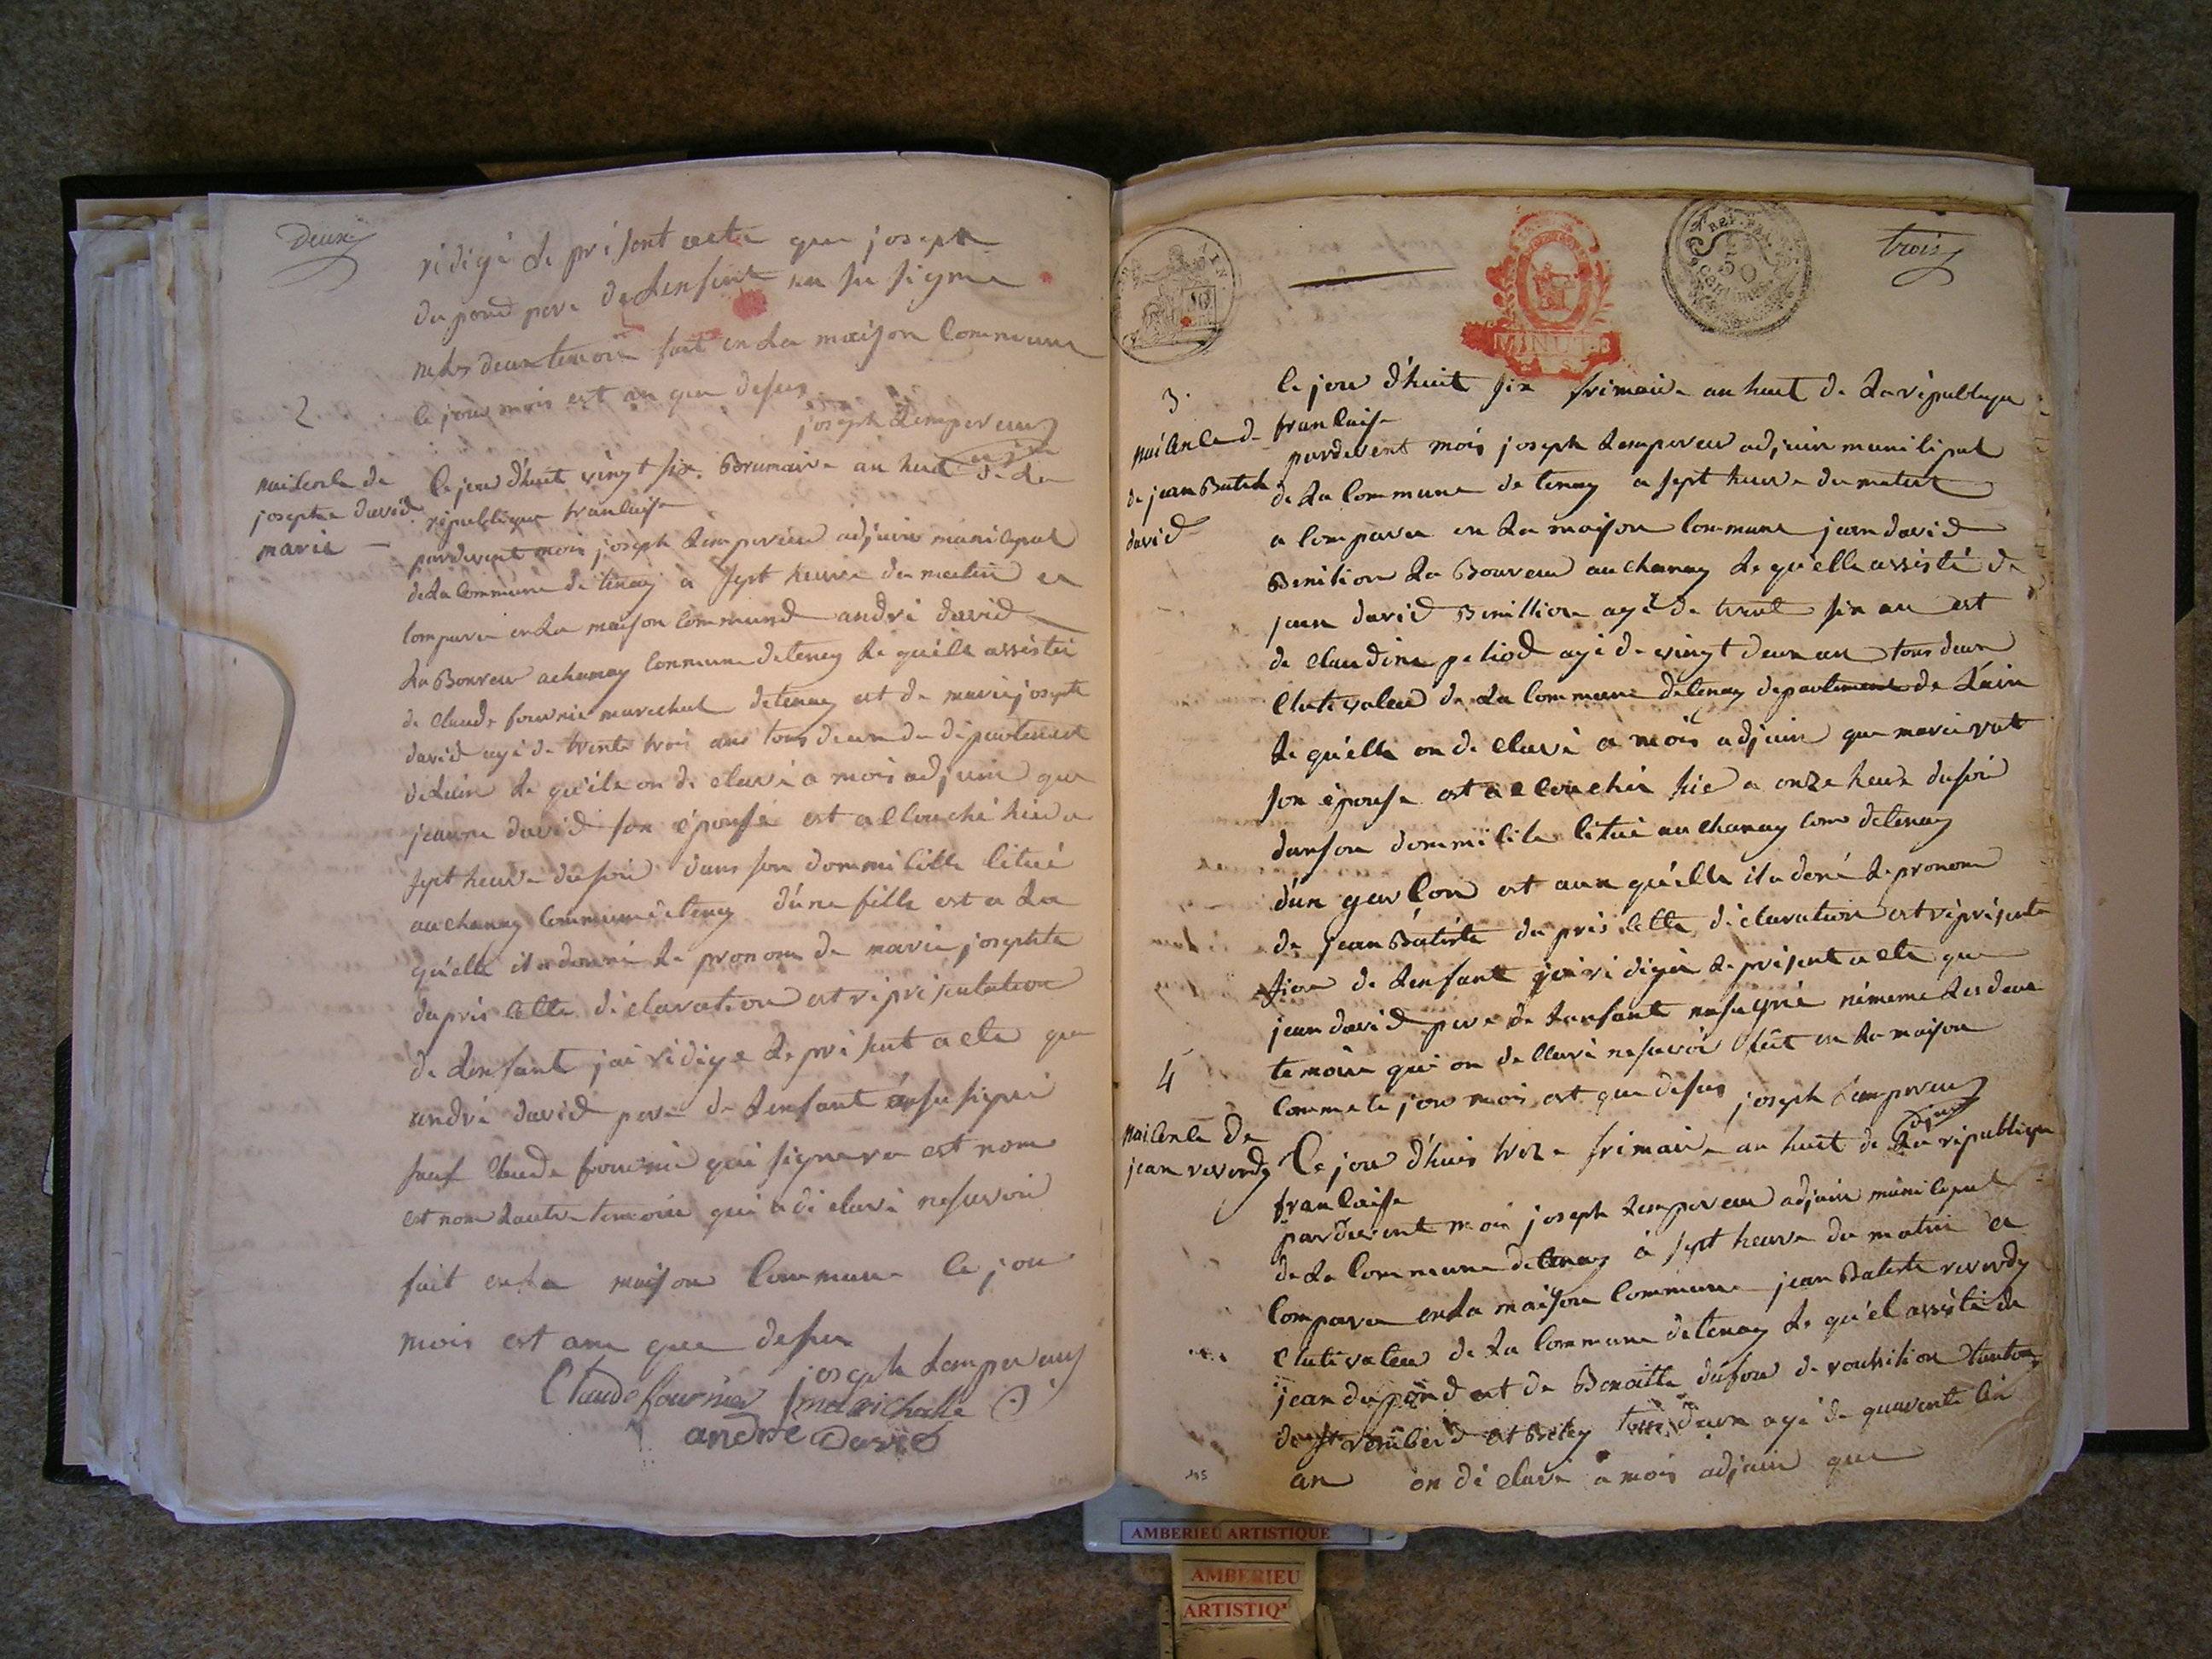 Deux
rédigé le présent acte que joseph
dupond pere de Lenfant na su signe
ne les deux temoin fait en La maison Commune
le jour mois est an que desus
joseph Lempereur
adjoin
2
naisence de
josephte david
marie
le jour d'huit vingt six Brumaire an huit de La
république francaise
pardevent mois joseph Lempereur adjuin municipal
de La Commune de tenay a sept heure du matin a
comparu en La maison Commune andré david
La Boureur a chanay Commune de tenay Le quélle assistéi
de Claude fournie marechal de tenay est de marie josephte
david agé de trente trois ans tous deux du département
de Lain Le quéile on de claré a mois adjuin que
jeanne david son épouse est acCouché hier a
sept heure du soir dans son dommicille citué
au chanay Commune de tenay d'une fille est a La
quélle il a donné Le pronom de marie josephte
dapris cette déclaration est répresentation
de Lenfant jai rédige Le présent acte que
andré david pere de Lenfant a su signé
sauf Claude fournié qui signera est nom
est nom Lautre temoin qui a déclaré ne savoir
fait en La maison Commune le jour
mois est an que desus
joseph Lempereur
Claude fournier marichalle
andré David
trois
50
MINUTES
3.
naicence d-
de jean Batiste
david
le jour d'huit six frimaire an huit de La république
francaise
pardevent mois joseph Lempereur adjuin municipal
de La Commune de tenay a sept heure du matin
a comparu en La maison Commune jean david
Benition La Boureur au chanay Le quélle assisté de
jean david Benillion agé de trent six an est
de claudine peliod agé de vingt deux an tous deux
Cultivateur de La Commune de tenay département de L'ain
Le quélle on de claré a mois adjuin que marie vut
son épouse est acCouchée hie a onze heure du soir
dans son dommicile citué au chanay com de tenay
d'un garcon est au quélle il a doné Le pronom
de jean Batiste da pris cette déclaration est répresenta
tion de Lenfant jai rédigé Le présent acte que
jean david pere de Lanfant na signé ni meme Les deux
temoin qui on de claré ne savoir fait en La maison
Commune le jour mois est que desus joseph Lempereur
adjuin
4
naicence De
jean reverdy
Ce jour d'huis treze frimaire an huit de La république
francaise
pardevent mois joseph Lempereur adjuin municipal
de La Commune de tenay a sept heure du matin a
Comparu en La maison Commune jean Batiste reverdy
Cultivateur de La Commune de tenay Le quél assisté de
jean dupond est de Benoitte dufour de roussilion Canton
de St rembert et Beley tous deux agé de quarente cin
an on déclaré a mois adjuin que
AMBERIEU ARTISTIQUE
AMBERIEU
ARTISTIQ